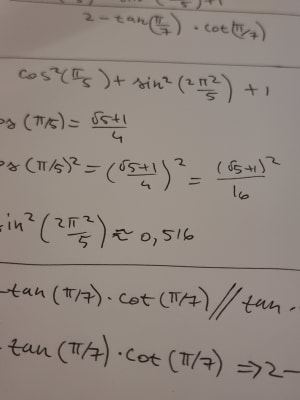 2 - tan(π/7) · cot(π/7)
cos²(π/5) + sin²(2π²/5) + 1
os (π/5) = √5+1/4
os (π/5)² = (√5+1/4)² = (√5+1)²/16
in²(2π²/5) ≈ 0,516
-tan(π/7) · cot(π/7) // tan ·
- tan(π/7) · cot(π/7) ⇒ 2 -